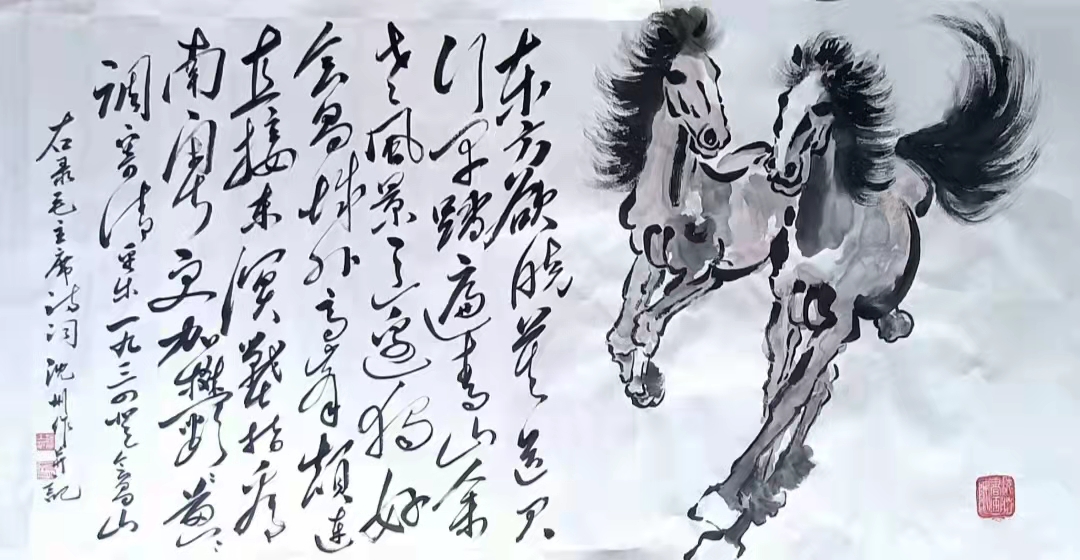 东方欲晓莫道君
行早踏遍青山人未
老风景这边独好
会昌城外高峰颠连
直接东溟战士指看
南粤更加郁郁葱葱
调寄清平乐一九三四登会昌山
右录毛主席诗词沈州作并记